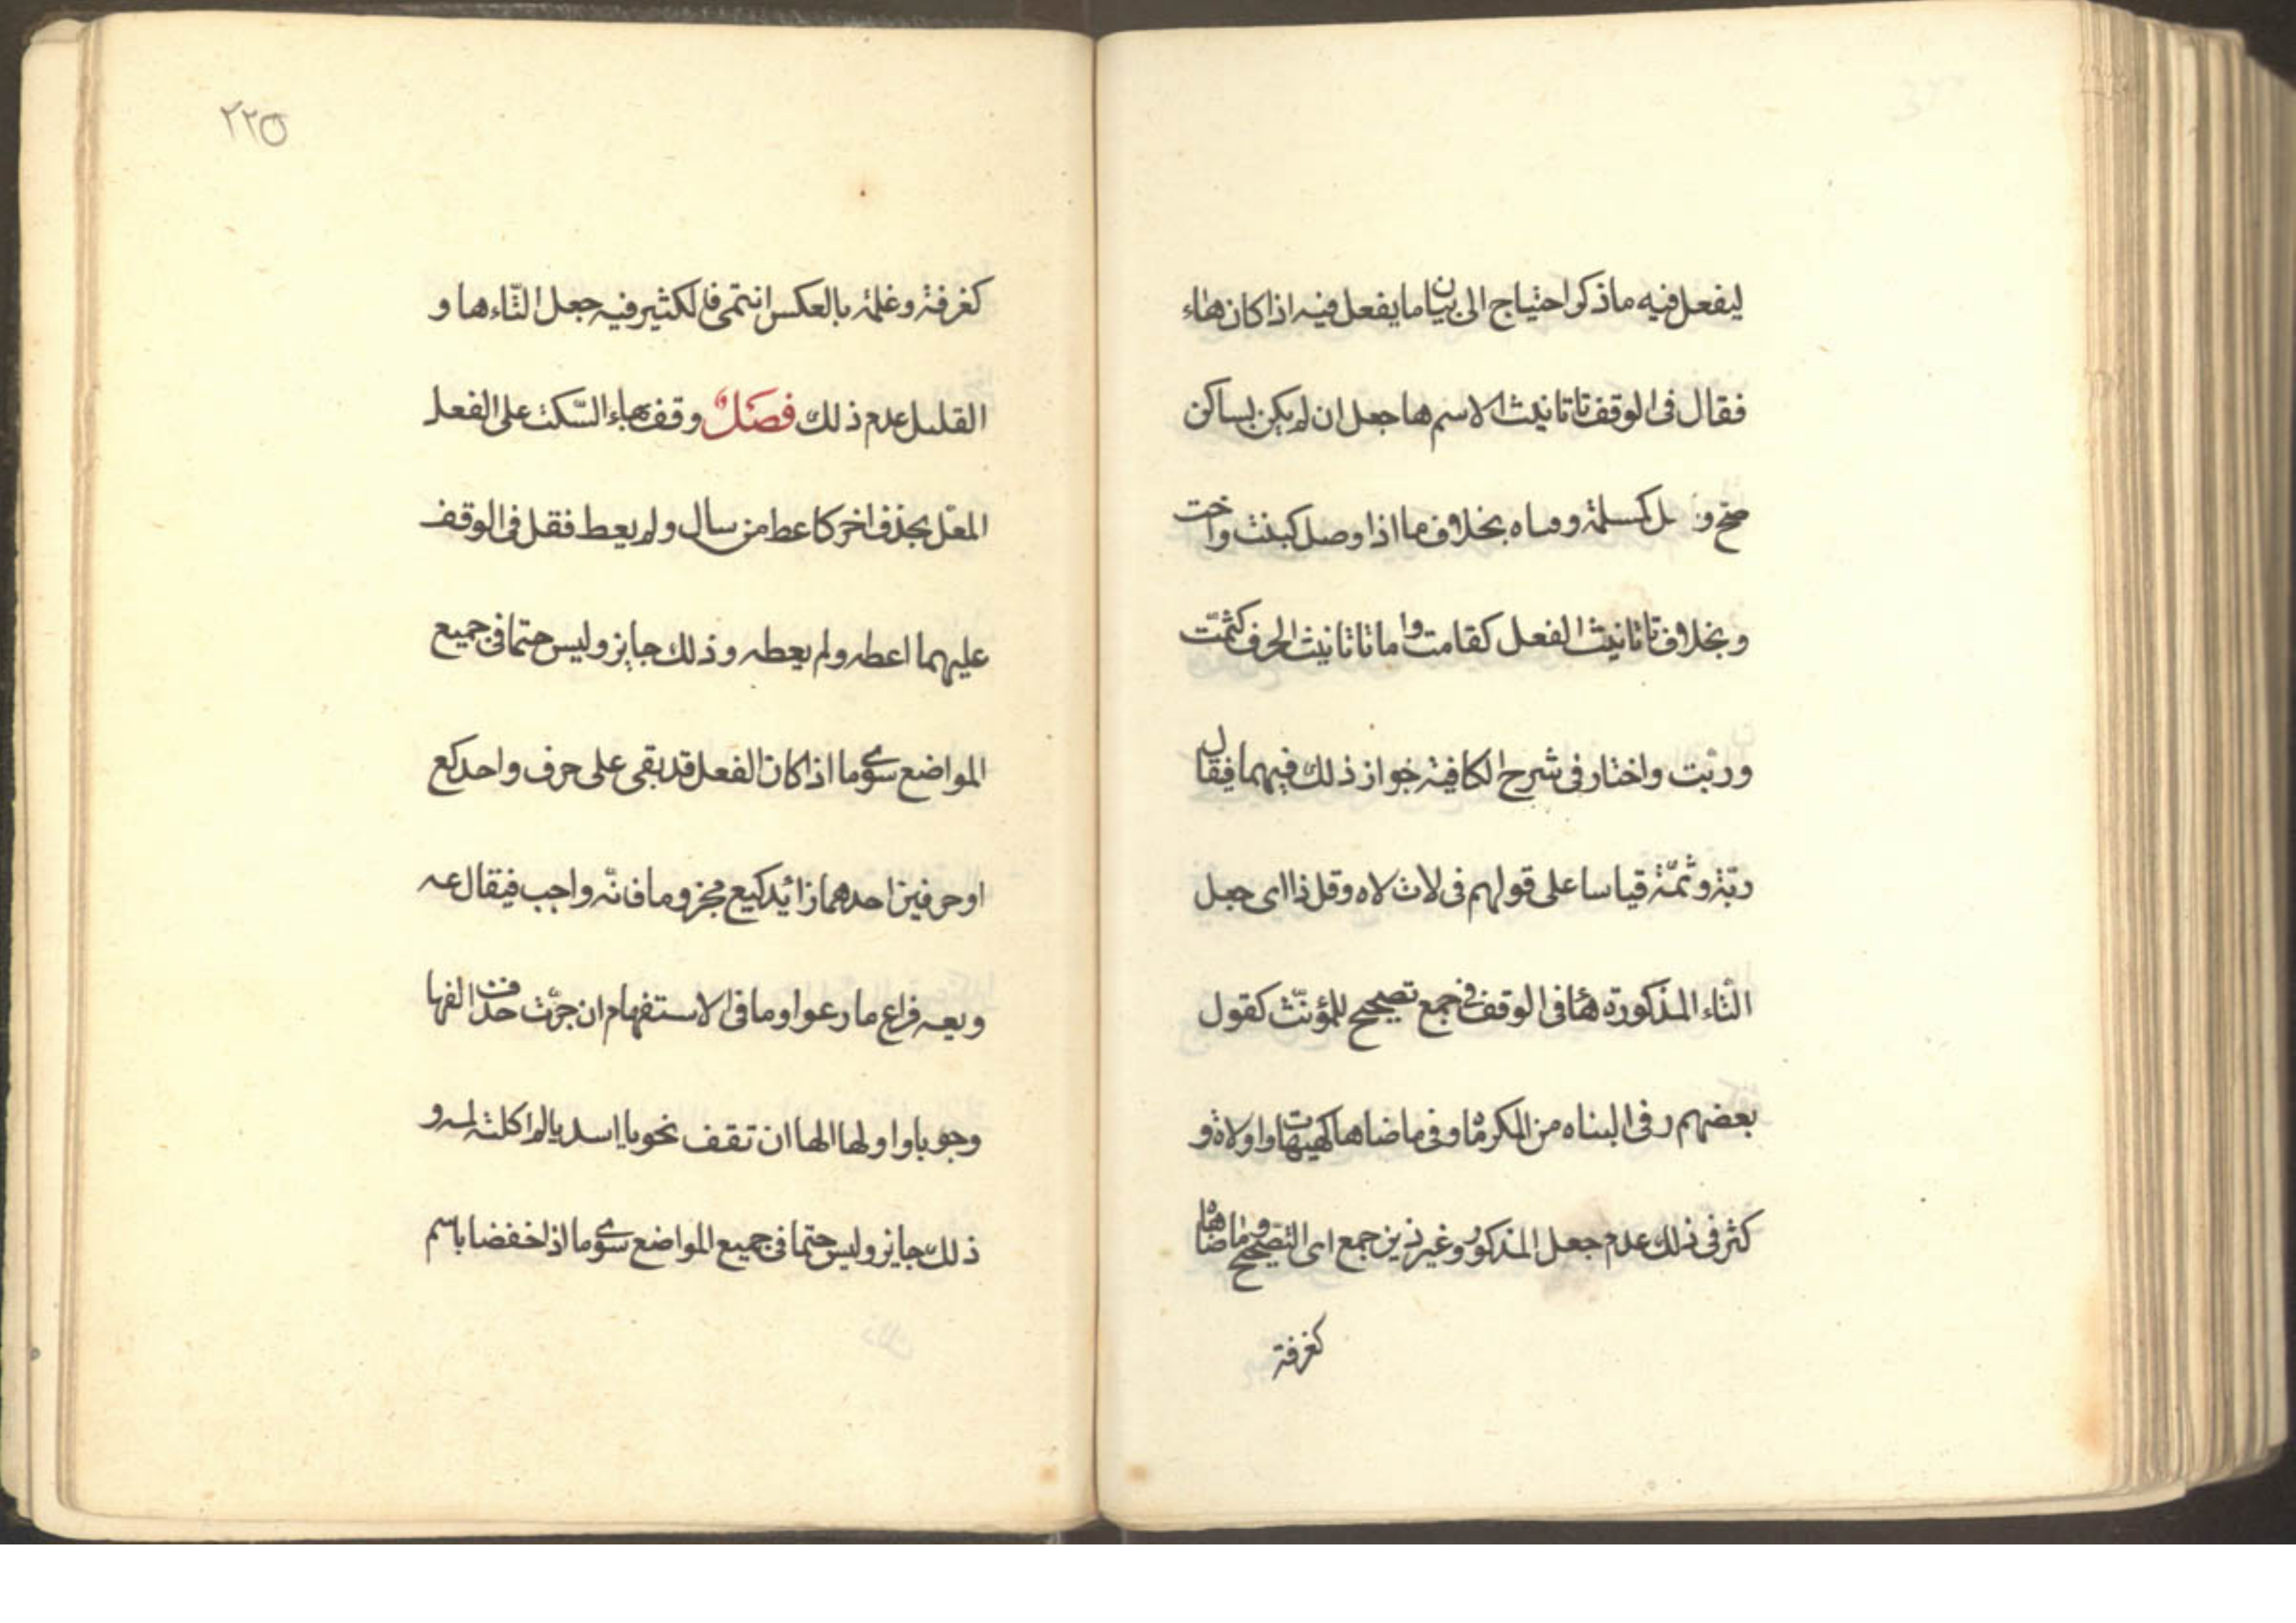 ليفعل فيه ما ذكر احتياج الى بيان ما يفعل فيه اذا كان هاء
فقال فى الوقف تا تانيث الاسم ها جعل ان لم يكن بساكن
صح وصل كمسلمة وفتاه بخلاف ما اذا وصل كبنت واخت
و بخلاف تا تانيث الفعل كقامت واما تا تانيث الحرف كثمّت
وربت واختار فى شرح الكافية جواز ذلك فيهما فيقال
ربّة وثمّة قياسا على قولهم فى لات لاه وقل ذا اى جعل
التّاء المذكورة هاء فى الوقف فى جمع تصحيح للمؤنّث كقول
بعضهم دفن البناه من المكرماه و فى ما ضاها كهيهات واولاة و
كثر فى ذلك عدم جعل المذكور وغير ذين جمع اى التصحيح وما ضاهاه
كغرفة
٢٢٥
كغرفة و غلمة بالعكس انتمى فالكثير فيه جعل التّاء ها و
القليل عدم ذلك فصل وقف بهاء السّكت على الفعل
المعلّ بحذف اخر كاعط من سال و لم يعط فقل فى الوقف
عليهما اعطه ولم يعطه و ذلك جايز وليس حتما فى جميع
المواضع سوى ما اذا كان الفعل قد بقى على حرف واحد كع
او حرفين احدهما زائد كيع مجزوما فانّه واجب فيقال عه
و يعه فراع ما رعوا وما فى الاستفهام ان جرّت حذف الفها
وجوبا واولها الها ان تقف نحو يا اسديا لم اكلته لمه و
ذلك جايز وليس حتما فى جميع المواضع سوى ما اذا خفضا باسم